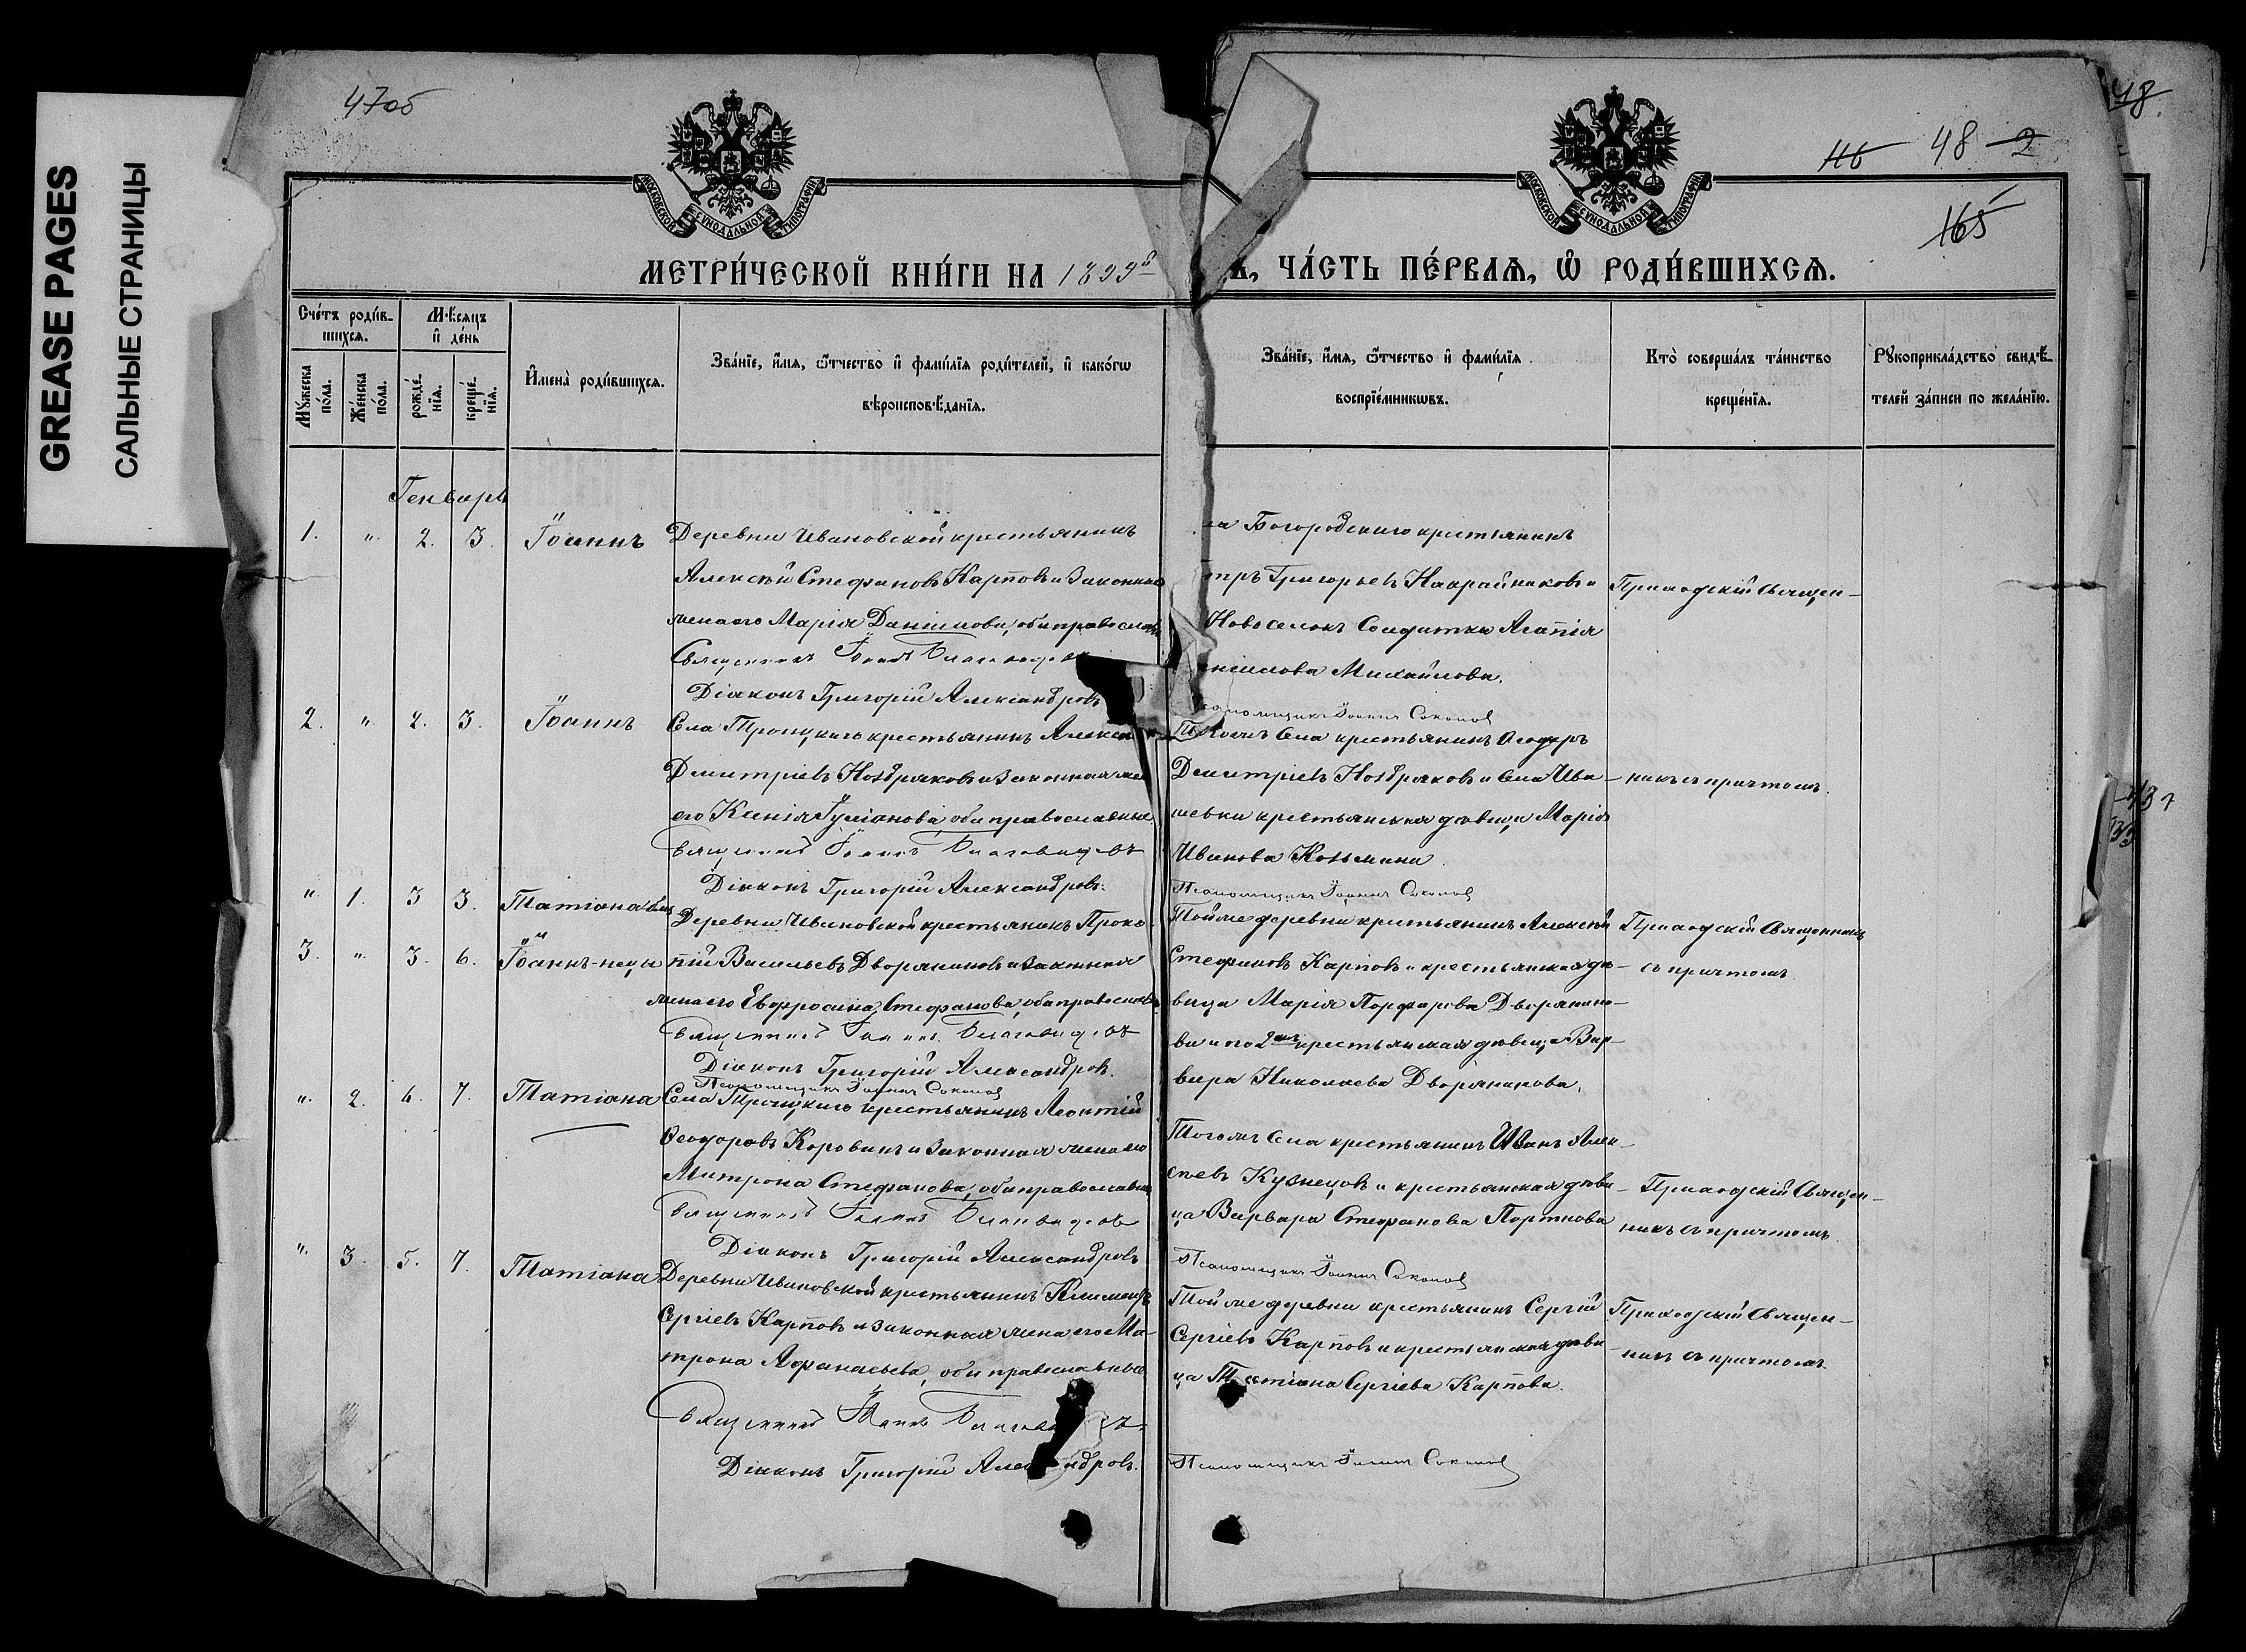 GREASE PAGES
САЛЬНЫЕ СТРАНИЦЫ
47об
48
116 48 2
165
МОСКОВСКОЙ СѴНОДАЛЬНОЙ ТИПОГРАФІИ
МОСКОВСКОЙ СѴНОДАЛЬНОЙ ТИПОГРАФІИ
МЕТРИ́ЧЕСКОЙ КНИ́ГИ НА 1899
Ъ, ЧА́СТЬ ПЕ́РВАѦ, Ѡ҆ РОДИ́ВШИХСѦ.
Сче́тъ роди́в-
шихсѧ.
Мѣ́сѧцъ
и҆ де́нь
Мꙋ́жеска по́ла.
Же́нска по́ла.
рожде́нїѧ.
креще́нїѧ.
И҆мена̀ роди́вшихсѧ.
Зва́нїе, и҆́мѧ, ѻ҆́тчество и҆ фами́лїѧ роди́телей, и҆ како́гѡ
вѣроисповѣ́данїѧ.
Зва́нїе, и҆́мѧ, ѻ҆́тчество и҆ фами́лїѧ
воспрїе́мникѡвъ.
Кто̀ соверша́лъ та́инство
креще́нїѧ.
Рꙋкоприкла́дство свидѣ́-
телей за́писи по жела́нїю.
Генварь
1. " 2. 3. Іоаннъ
Деревни Ивановской крестьянинъ
Алексѣй Стефановъ Карповъ и законная
жена его Марія Даніилова, оба православн
Священникъ Іоаннъ Благовидовъ
Діаконъ Григорій Александровъ
ла Богородскаго крестьянинъ
тръ Григорьевъ Накрайниковъ и
Новоселокъ Солдатка Агапія
ніилова Михайлова.
Псаломщикъ Іоаннъ Соколов
Приходскій Священ-
2. " 2. 3. Іоаннъ
Села Троицкаго крестьянинъ Алексѣ
Димитріевъ Ноздряковъ и законная жена
его Ксенія Іуліанова оба православные.
Священникъ Іоаннъ Благовидовъ
Діаконъ Григорій Александровъ.
Того же Села крестьянинъ Ѳеодоръ
Димитріевъ Ноздряковъ и Села Ива-
шевки крестьянская дѣвица Марія
Иванова Козьмина.
Псаломщикъ Іоаннъ Соколов
никъ съ причтомъ.
" 1. 3 3. Татіана
3. " 3. 6. Іоаннъ
Деревни Ивановской крестьянинъ Проко
пій Васильевъ Дворяниновъ и законная
жена его Евфросина Стефанова, оба православн
Священникъ Іоаннъ Благовидовъ
Діаконъ Григорій Александровъ.
Псаломщикъ Іоаннъ Соколов
Той же деревни крестьянинъ Алексѣй
Стефановъ Карповъ и крестьянская дѣ-
вица Марія Порфирова Дворянино-
ва и по 2мъ крестьянская дѣвица Вар-
вара Николаева Дворянинова.
Приходскій Священникъ
съ причтомъ.
" 2. 6. 7. Татіана
Села Троицкаго крестьянинъ Леонтій
Ѳеодоровъ Коровинъ и законная жена его
Матрона Стефанова, оба православные
Священникъ Іоаннъ Благовидовъ
Діаконъ Григорій Александровъ
Того же Села крестьянинъ Иванъ Алек-
сѣевъ Кузнецовъ и крестьянская дѣви-
ца Варвара Стефанова Портнова
Псаломщикъ Іоаннъ Соколов
Приходскій Священ-
никъ съ причтомъ.
" 3. 5. 7. Татіана
Деревни Ивановской крестьянинъ Климентъ
Сергіевъ Карповъ и законная жена его Ма-
трона Афанасьева, оба православные
Священникъ Іоаннъ
Діаконъ Григорій Александровъ.
Той же деревни крестьянинъ Сергій
Сергіевъ Карповъ и крестьянская дѣви-
ца Татіана Сергіева Карпова.
Псаломщикъ Іоаннъ Соколов
Приходскій Священ-
никъ съ причтомъ.